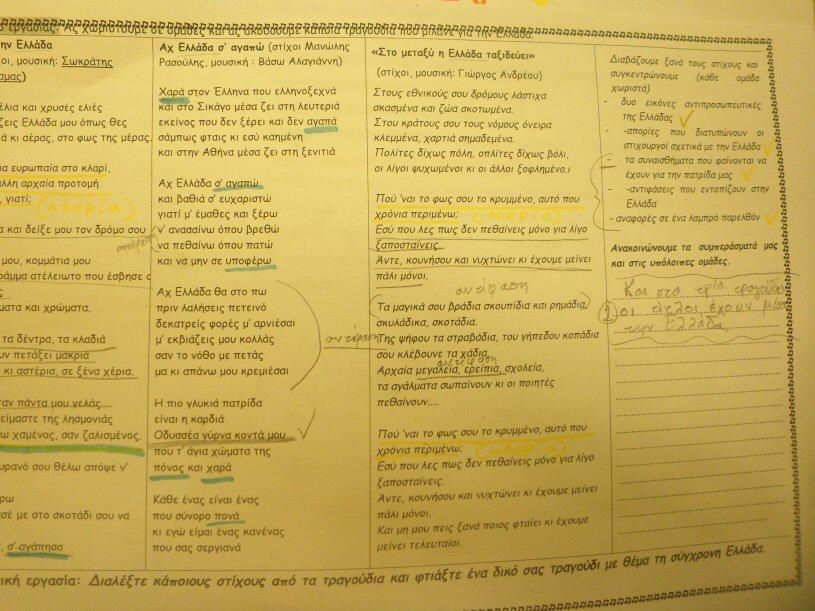 εργασίας: Ας χωριστούμε σε ομάδες και ας ακούσουμε κάποια τραγούδια που μιλάνε για την Ελλάδα.
την Ελλάδα
μουσική: Σωκράτης
έλια και χρυσές ελιές
ζεις Ελλάδα μου όπως θες
κι αέρας, στο φως της μέρας.
ια ευρωπαία στο κλαρί,
άλλη αρχαία προτομή
, γιατί;
(απορία)
α και δείξε μου τον δρόμο σου
μου, κομμάτια μου
ράμμα ατέλειωτο που έσβησε ο
ματα και χρώματα.
τα δέντρα, τα κλαδιά
υν πετάξει μακριά
κι αστέρια, σε ξένα χέρια.
αν πάντα μου γελάς
είμαστε της λησμονιάς
ω χαμένος, σαν ζαλισμένος.
υρανό σου θέλω απόψε ν'
ρω
σέ με στο σκοτάδι σου να
, σ' αγάπησα
Αχ Ελλάδα σ' αγαπώ (στίχοι Μανώλης
Ρασούλης, μουσική : Βάσω Αλαγιάννη)
Χαρά στον Έλληνα που ελληνοξεχνά
και στο Σικάγο μέσα ζει στη λευτεριά
εκείνος που δεν ξέρει και δεν αγαπά
σάμπως φταις κι εσύ καημένη
και στην Αθήνα μέσα ζει στη ξενιτιά
Αχ Ελλάδα σ' αγαπώ
και βαθιά σ' ευχαριστώ
γιατί μ' έμαθες και ξέρω
ν' ανασαίνω όπου βρεθώ
να πεθαίνω όπου πατώ
και να μην σε υποφέρω
Αχ Ελλάδα θα στο πω
πριν λαλήσεις πετεινό
δεκατρείς φορές μ' αρνιέσαι
μ' εκβιάζεις μου κολλάς
σαν το νόθο με πετάς
μα κι απάνω μου κρεμιέσαι
αντίφαση
Η πιο γλυκιά πατρίδα
είναι η καρδιά
Οδυσσέα γύρνα κοντά μου
που τ' άγια χώματα της
πόνος και χαρά
Κάθε ένας είναι ένας
που σύνορο πονά
κι εγώ είμαι ένας κανένας
που σας σεργιανά
«Στο μεταξύ η Ελλάδα ταξιδεύει»
(στίχοι, μουσική: Γιώργος Ανδρέου)
Στους εθνικούς σου δρόμους λάστιχα
σκασμένα και ζώα σκοτωμένα.
Στου κράτους σου τους νόμους όνειρα
κλεμμένα, χαρτιά σημαδεμένα.
Πολίτες δίχως πόλη, οπλίτες δίχως βόλι,
οι λίγοι ψυχωμένοι κι οι άλλοι ξοφλημένο.ι
Πού 'ναι το φως σου το κρυμμένο, αυτό που
χρόνια περιμένω; (απορία)
Εσύ που λες πως δεν πεθαίνεις μόνο για λίγο
ξαποσταίνεις.
Άντε, κουνήσου και νυχτώνει κι έχουμε μείνει
πάλι μόνοι.
αντίφαση
Τα μαγικά σου βράδια σκουπίδια και ρημάδια,
σκυλάδικα, σκοτάδια.
Της ψήφου τα στραβάδια, του γήπεδου κοπάδια
σου κλέβουνε τα χάδια.
αντίφαση
Αρχαία μεγαλεία, ερείπια, σχολεία,
τα αγάλματα σωπαίνουν κι οι ποιητές
πεθαίνουν....
Πού 'ναι το φως σου το κρυμμένο, αυτό που
χρόνια περιμένω; (απορία)
Εσύ που λες πως δεν πεθαίνεις μόνο για λίγο
ξαποσταίνεις.
Άντε, κουνήσου και νυχτώνει κι έχουμε μείνει
πάλι μόνοι.
Και μη μου πεις ξανά ποιος φταίει κι έχουμε
μείνει τελευταίοι.
Διαβάζουμε ξανά τους στίχους και
συγκεντρώνουμε (κάθε ομάδα
χωριστά)
- δυο εικόνες αντιπροσωπευτικές
της Ελλάδας
- -απορίες που διατυπώνουν οι
στιχουργοί σχετικά με την Ελλάδα
- τα συναισθήματα που φαίνονται να
έχουν για την πατρίδα μας
- -αντιφάσεις που εντοπίζουν στην
Ελλάδα
- αναφορές σε ένα λαμπρό παρελθόν
Ανακοινώνουμε τα συμπεράσματά μας
και στις υπόλοιπες ομάδες.
Και στα τρία τραγούδια
οι στίχοι έχουν μέσα
την Ελλάδα.
ική εργασία: Διαλέξτε κάποιους στίχους από τα τραγούδια και φτιάξτε ένα δικό σας τραγούδι με θέμα τη σύγχρονη Ελλάδα.